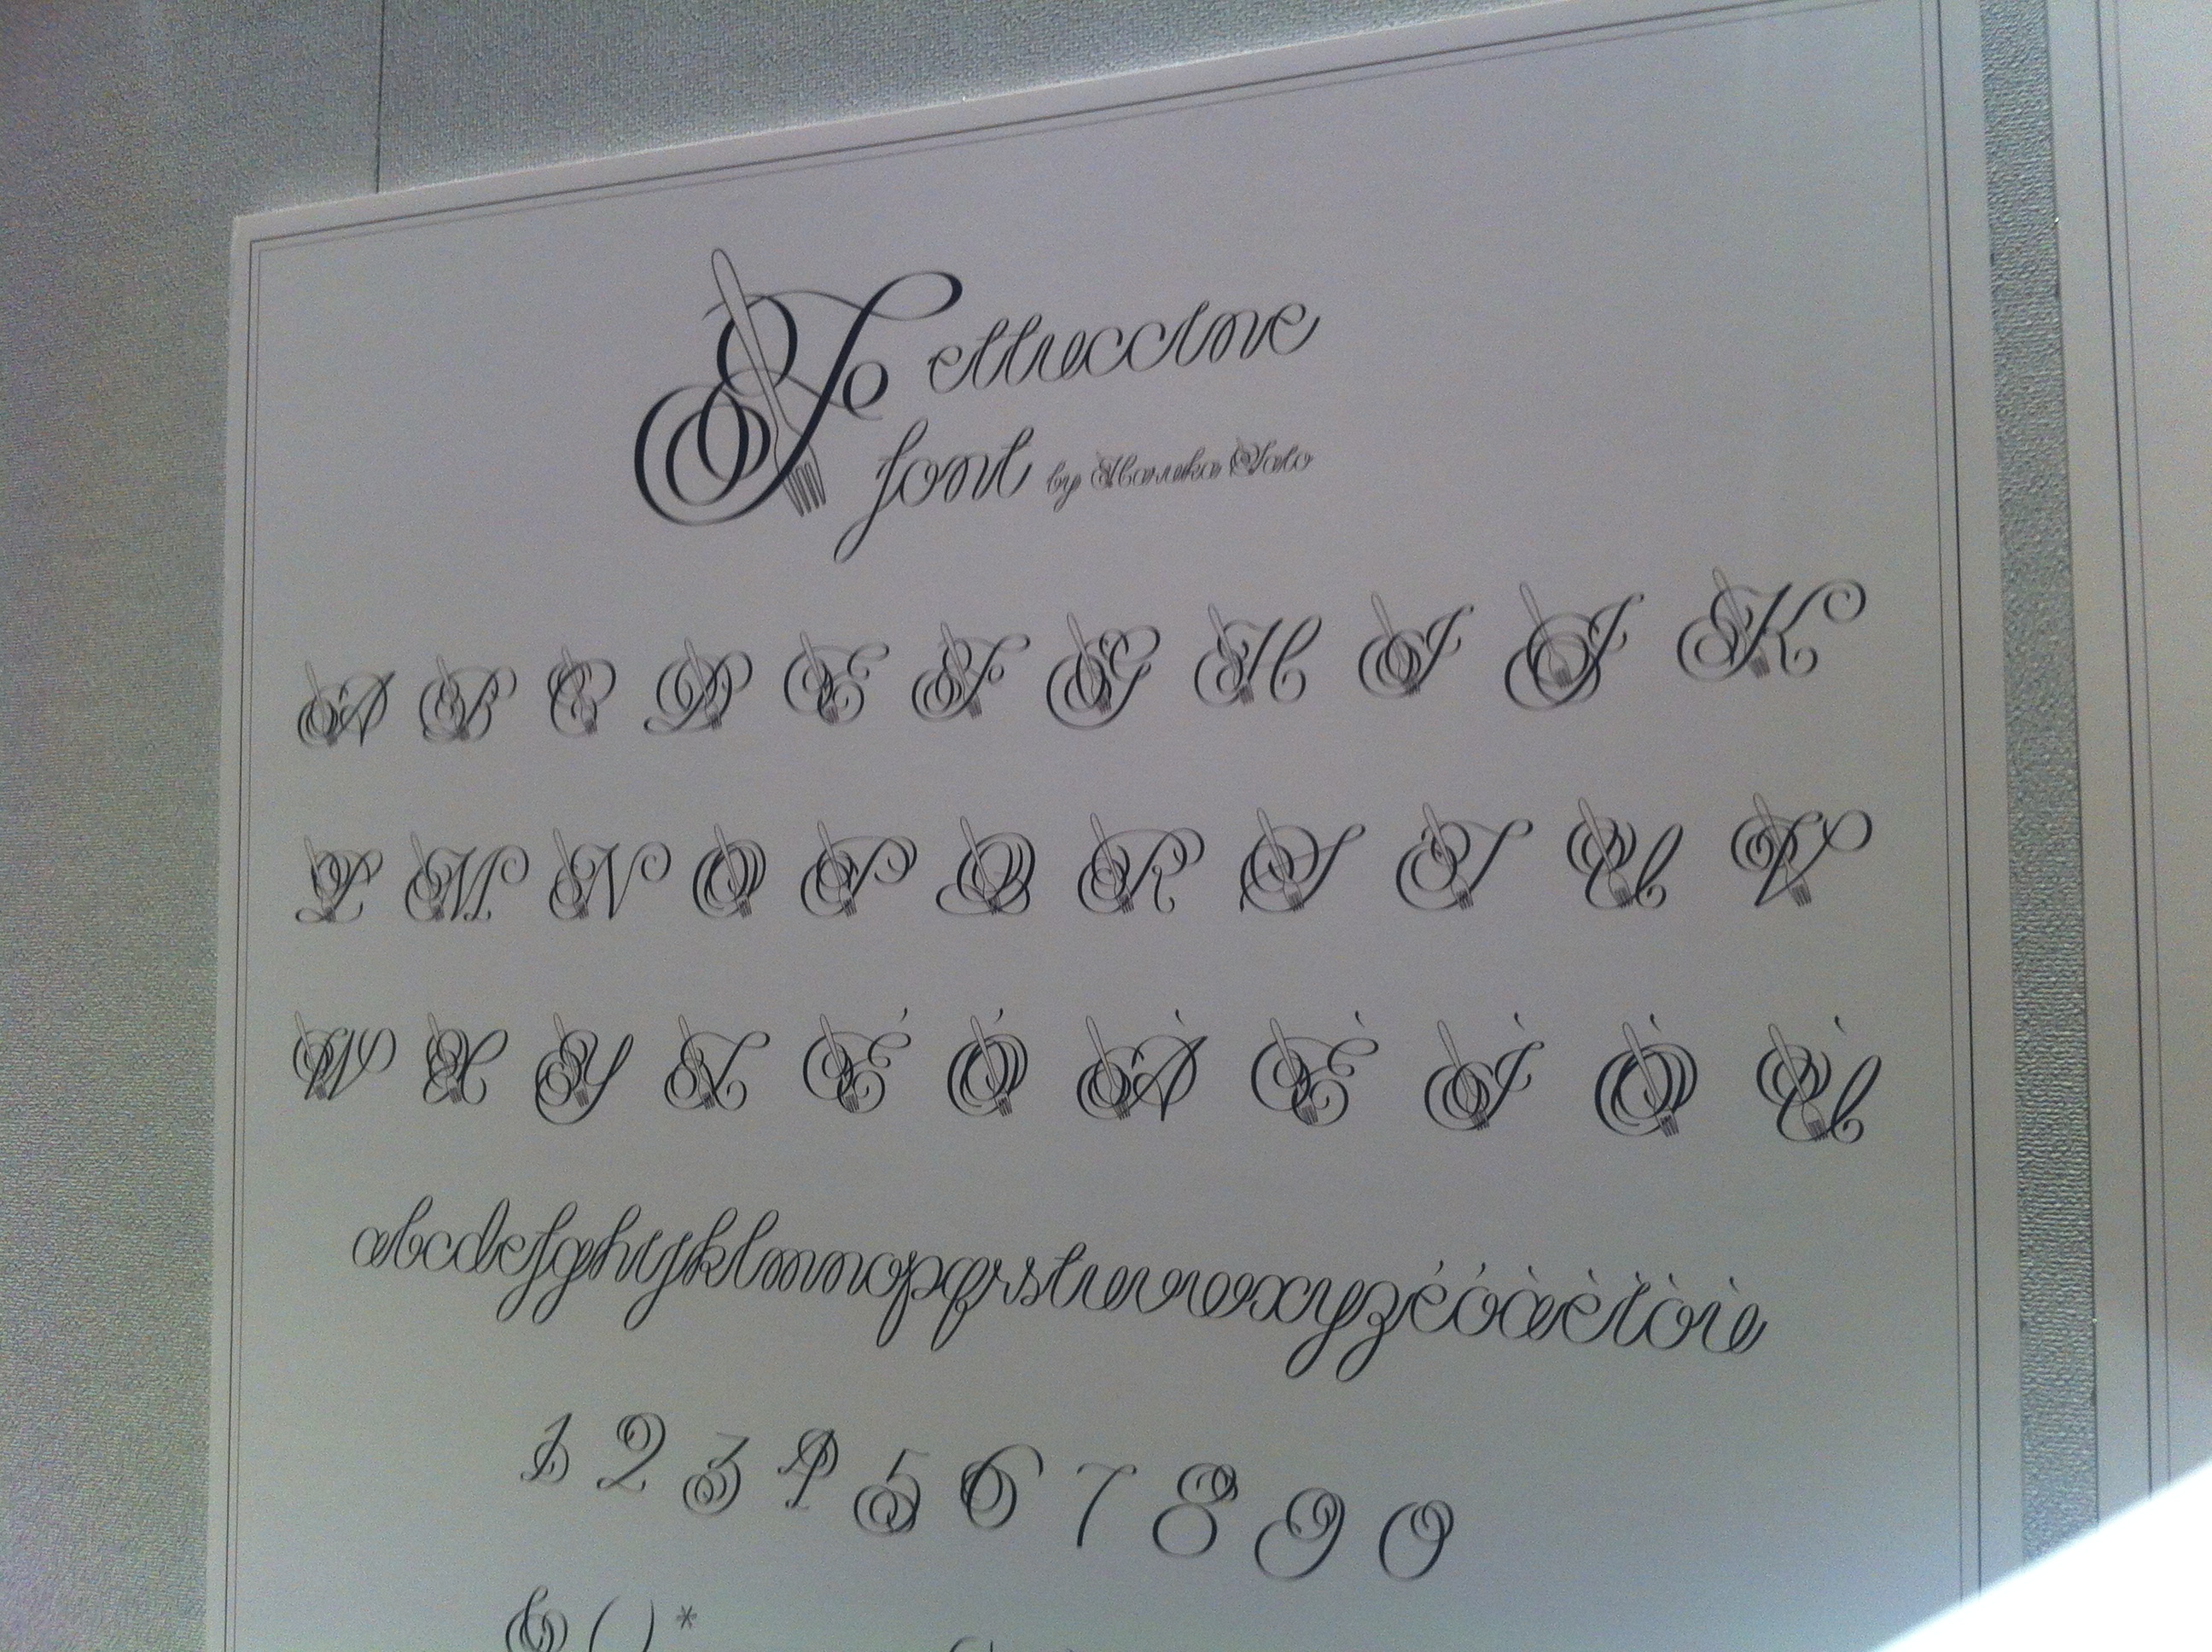 Fettuccine
font by Haruka Sato
A B C D E F G H I J K
L M N O P Q R S T U V
W X Y Z É Ó À È Ì Ò Ù
abcdefghijklmnopqrstuvwxyzéóàèìòù
1 2 3 4 5 6 7 8 9 0
& ( ) *